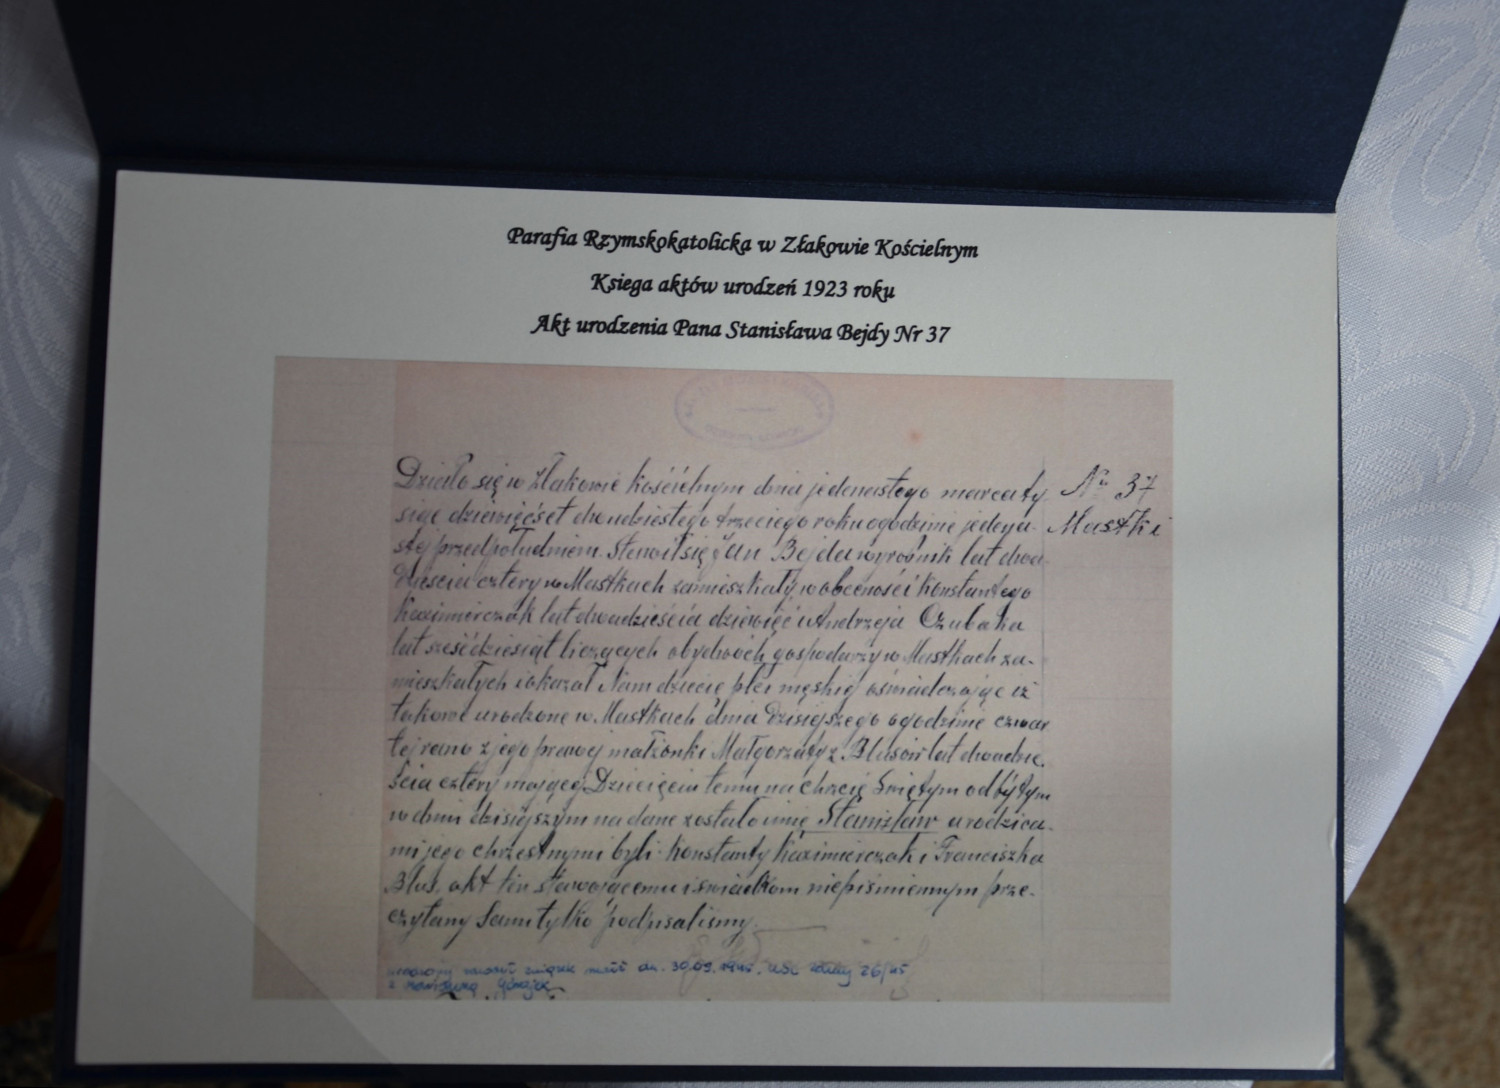 Parafia Rzymskokatolicka w Złakowie Kościelnym
Księga aktów urodzeń 1923 roku
Akt urodzenia Pana Stanisława Bejdy Nr 37
Działo się w Złakowie Kościelnym dnia jedenastego marca ty- № 37
siąc dziewięćset dwudziestego trzeciego roku o godzinie jedena- Mastki
stej przed południem. Stawił się Jan Bejda wyrobnik lat dwa-
dzieścia cztery w Mastkach zamieszkały, w obecności Konstantego
Kazimierczak lat dwadzieścia dziewięć i Andrzeja Czubaka
lat sześćdziesiąt liczących obydwóch gospodarzy w Mastkach za-
mieszkałych i okazał Nam dziecię płci męskiej oświadczając iż
takowe urodzone w Mastkach dnia dzisiejszego o godzinie czwar
tej rano z jego prawej małżonki Małgorzaty z Blusów lat dwadzie-
ścia cztery mającej. Dziecięciu temu na chrzcie Świętym odbytym
w dniu dzisiejszym nadane zostało imię Stanisław a rodzica-
mi jego chrzestnymi byli Konstanty Kazimierczak i Franciszka
Blus. akt ten stawającemu i świadkom niepiśmiennym prze-
czytany Sami tylko podpisaliśmy.
zawarł związek małż dn. 30.09.1945. USC 26/45
z Górajek